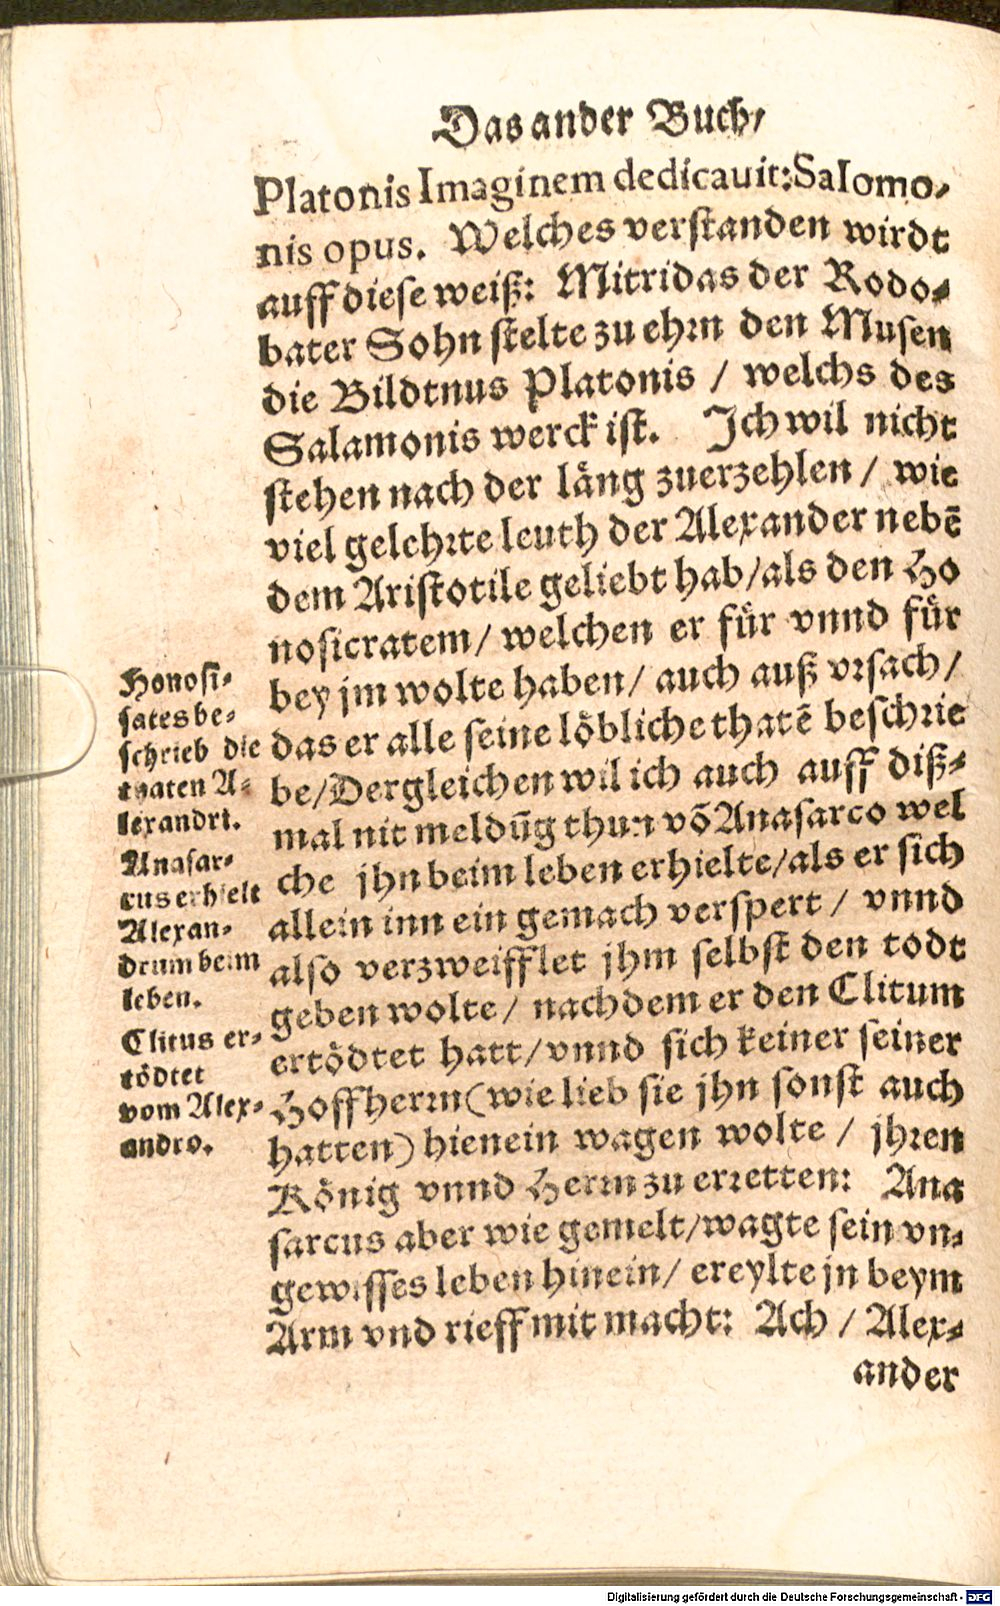 Das ander Buch/
Platonis Imaginem dedicauit: Salomo-
nis opus. Welches verstanden wirdt
auff diese weiß: Mitridas der Rodo-
bater Sohn stelte zu ehrn den Musen
die Bildtnus Platonis / welchs des
Salamonis werck ist. Ich wil nicht
stehen nach der läng zuerzehlen / wie
viel gelehrte leuth der Alexander nebē
dem Aristotile geliebt hab/als den Ho
nosicratem/ welchen er für vnnd für
bey jm wolte haben/ auch auß vrsach/
das er alle seine löbliche thatē beschrie
be/Dergleichen wil ich auch auff diß-
mal nit meldūg thun vō Anasarco wel
che jhn beim leben erhielte/als er sich
allein inn ein gemach verspert / vnnd
also verzweifflet jhm selbst den todt
geben wolte/ nachdem er den Clitum
ertödtet hatt/vnnd sich keiner seiner
Hoffherrn(wie lieb sie jhn sonst auch
hatten) hienein wagen wolte / jhren
König vnnd Herrn zu erretten: Ana
sarcus aber wie gemelt/wagte sein vn-
gewisses leben hinein/ ereylte jn beym
Arm vnd rieff mit macht: Ach / Alex-
ander
Honosi-
sates be-
schrieb die
thaten A-
lexandri.
Anasar-
cus erhielt
Alexan-
drum beim
leben.
Clitus er-
tödtet
vom Alex-
andro.
Digitalisierung gefördert durch die Deutsche Forschungsgemeinschaft - DFG